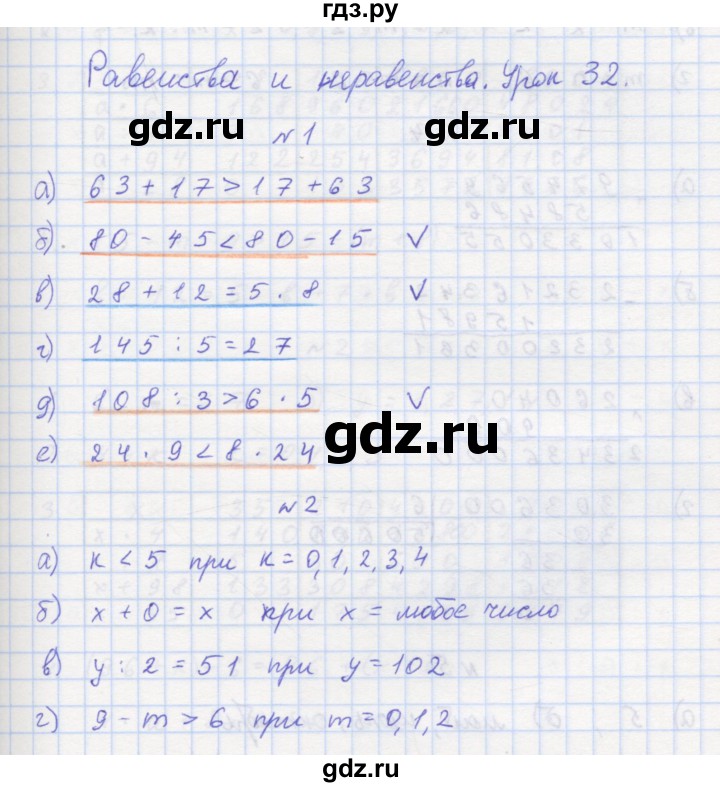 гдз.ру
Равенства и неравенства. Урок 32.
gdz.ru gdz.ru
№1
а) 63+17>17+63
б). 80-45<80-15 ✓
в) 28+12=5·8 ✓
г) 145:5=27
д) 108:3>6·5 ✓
gdz.ru
е) 24·9<8·24
№2
а) к<5 при к=0,1,2,3,4
б) x+0=x при x=любое число
в) y:2=51 при y=102
г) 9-m>6 при m=0,1,2
gdz.ru